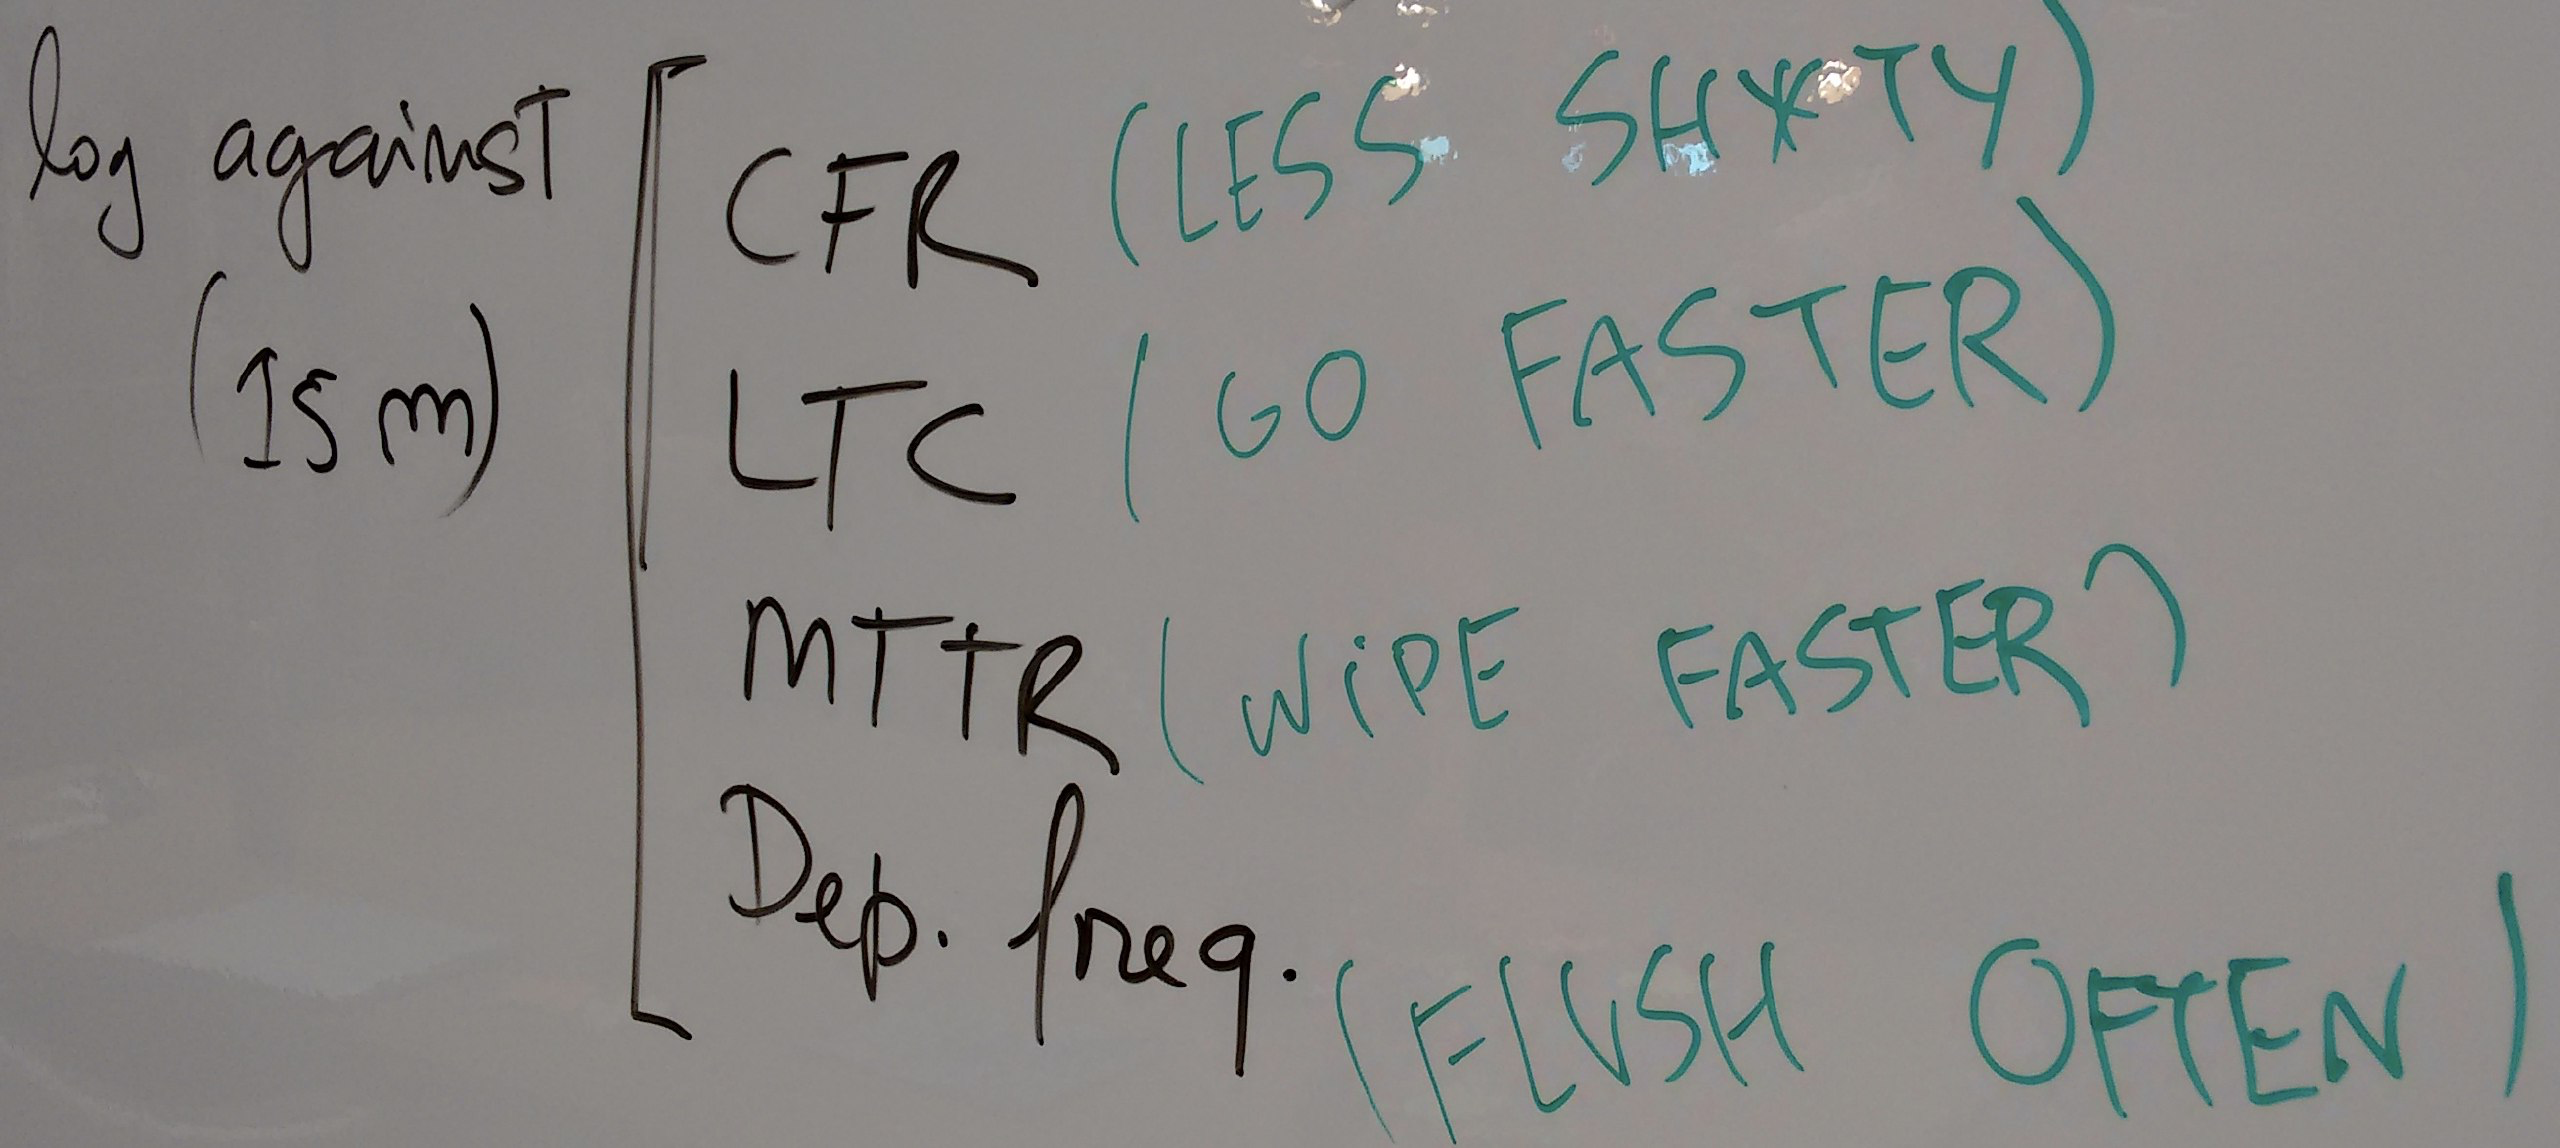 log against
(15 m)
CFR (LESS SH*TY)
LTC (GO FASTER)
MTTR (WiPE FASTER)
Dep. freq. (FLUSH OFTEN)